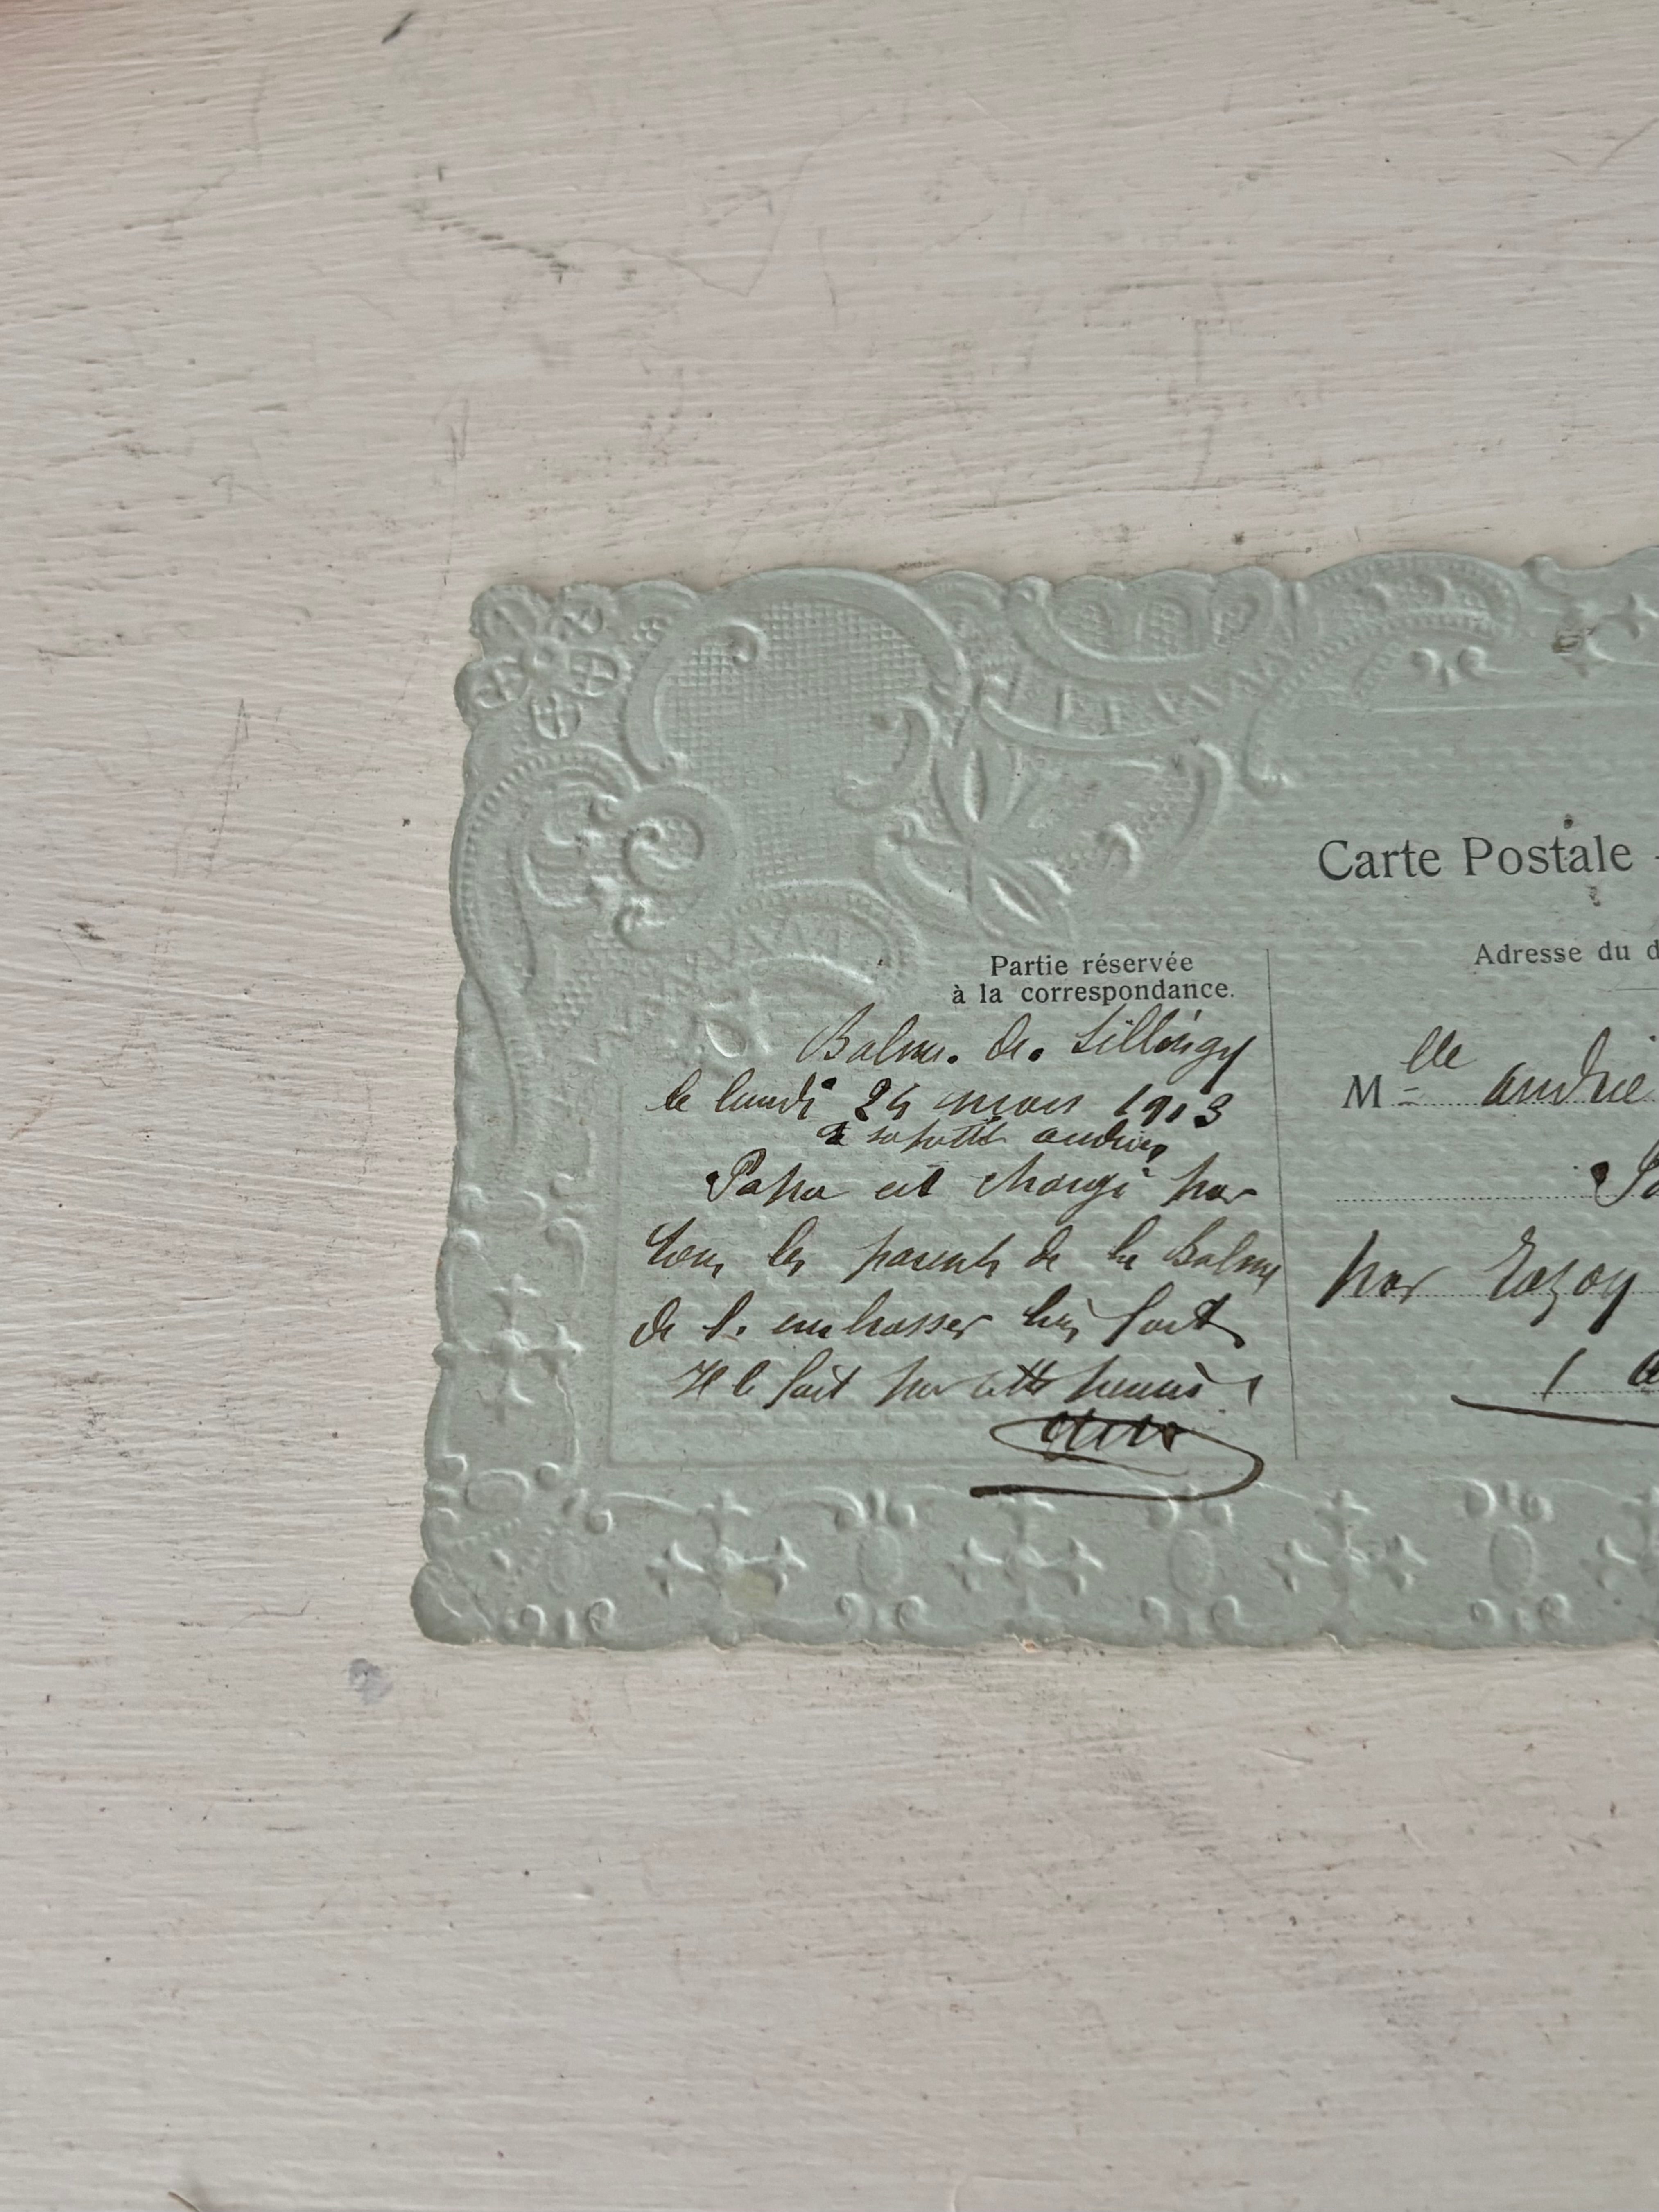 Carte Postale
Partie réservée
à la correspondance.
Adresse du d
Balme. de. Sillingy
le lundi 24 mars 1913
à sa petite andrée
Papa est chargé par
tous les parents de la Balme
de t. embrasser bien fort
Il le fait par cette pensée
Mlle andrée
par
1